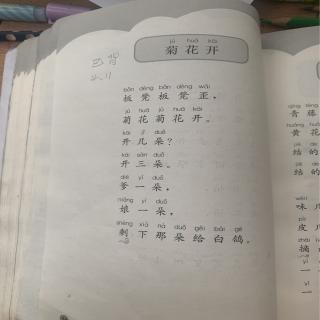 jú huā kāi
菊花开
已背
bǎn dèng bǎn dèng wāi
板凳板凳歪，
jú huā jú huā kāi
菊花菊花开。
kāi jǐ duǒ
开几朵？
kāi sān duǒ
开三朵。
diē yì duǒ
爹一朵，
niáng yì duǒ
娘一朵，
shèng xià nà duǒ gěi bái gē
剩下那朵给白鸽。
qīng téng
青藤
huáng huā
黄花
jiē de
结的
结的
wèi
味儿
皮儿
摘
yī
一
yī
一